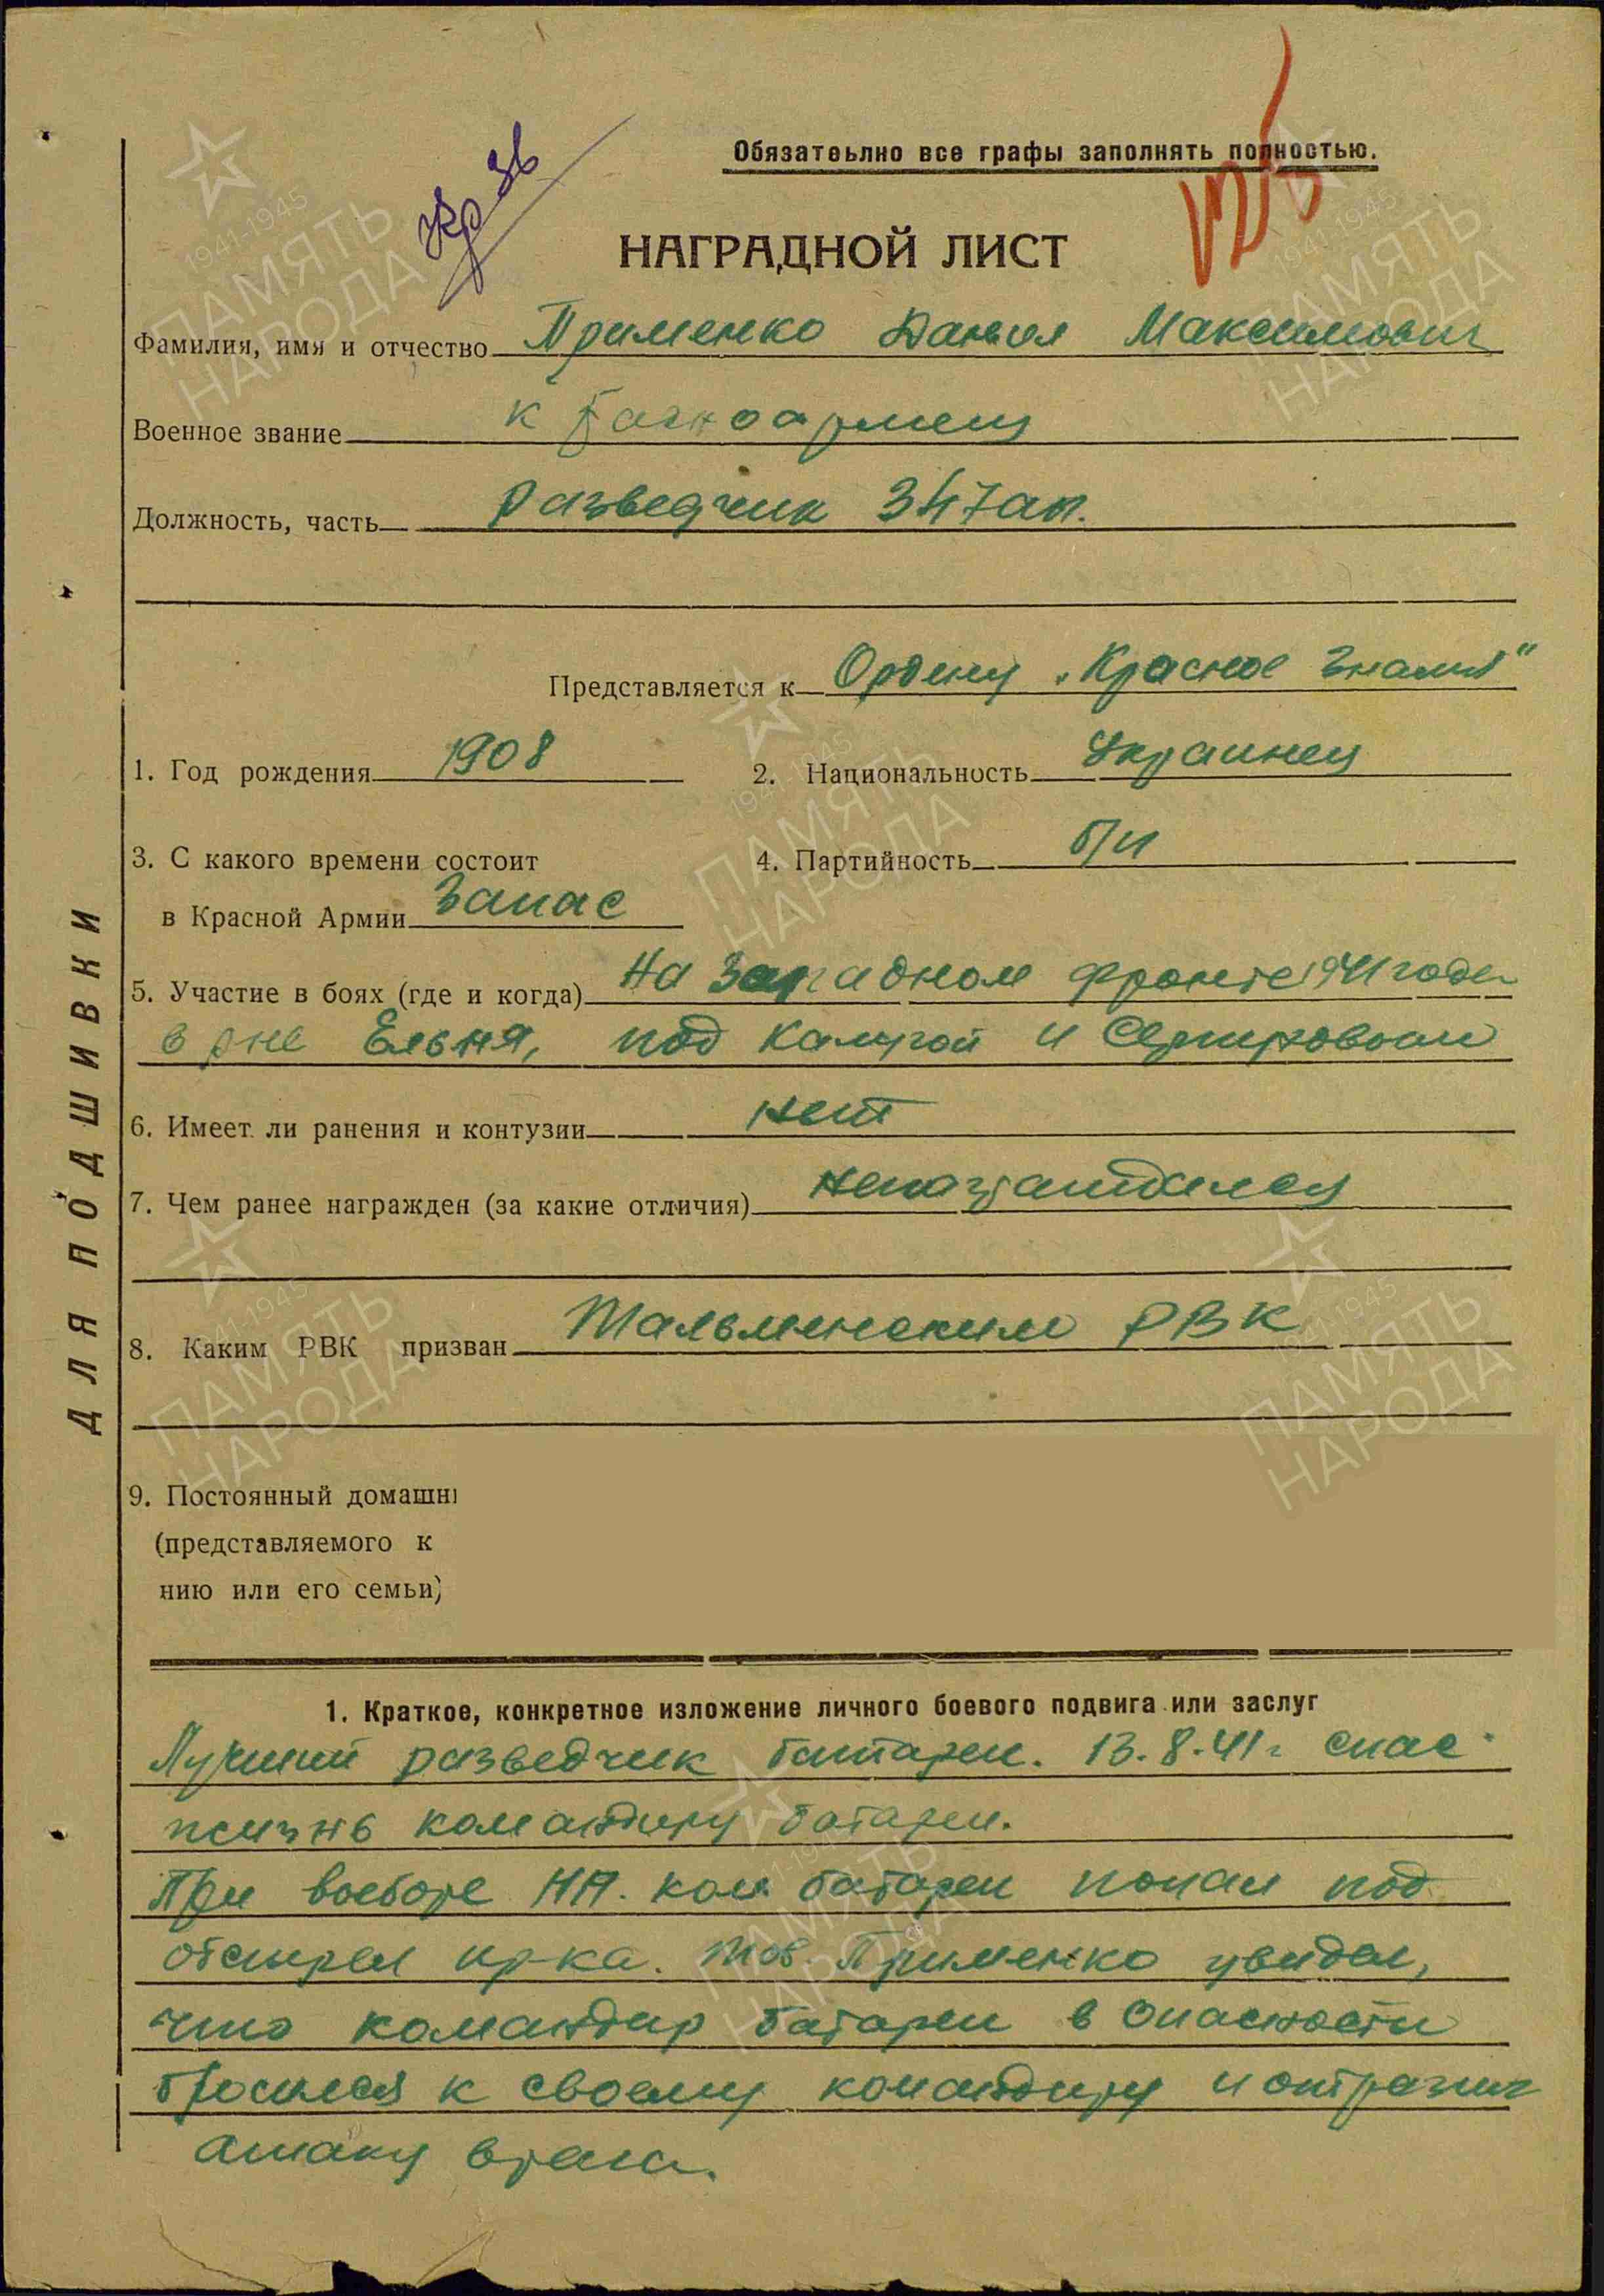 Обязатеьлно все графы заполнять полностью.
Кр Зв
НАГРАДНОЙ ЛИСТ
Фамилия, имя и отчество Применко Данил Максимович
Военное звание красноармеец
Должность, часть разведчик 347 ап.
Представляется к Ордену „Красное Знамя“
1. Год рождения 1908
2. Национальность Украинец
3. С какого времени состоит
в Красной Армии Запас
4. Партийность б/п
5. Участие в боях (где и когда) На Западном фронте 1941 года
в р-не Ельня, под Калугой и Серпуховом
6. Имеет ли ранения и контузии нет
7. Чем ранее награжден (за какие отличия) ненаграждался
8. Каким РВК призван Тальменским РВК
9. Постоянный домашн
(представляемого к
нию или его семьи)
ДЛЯ ПОДШИВКИ
1. Краткое, конкретное изложение личного боевого подвига или заслуг
Лучший разведчик батареи. 13.8.41г спас
жизнь командиру батареи.
При выборе НП. ком батареи попал под
обстрел пр-ка. тов. Применко увидел,
что командир батареи в опасности
бросился к своему командиру и отразил
атаку врага.
1941-1945
ПАМЯТЬ
НАРОДА